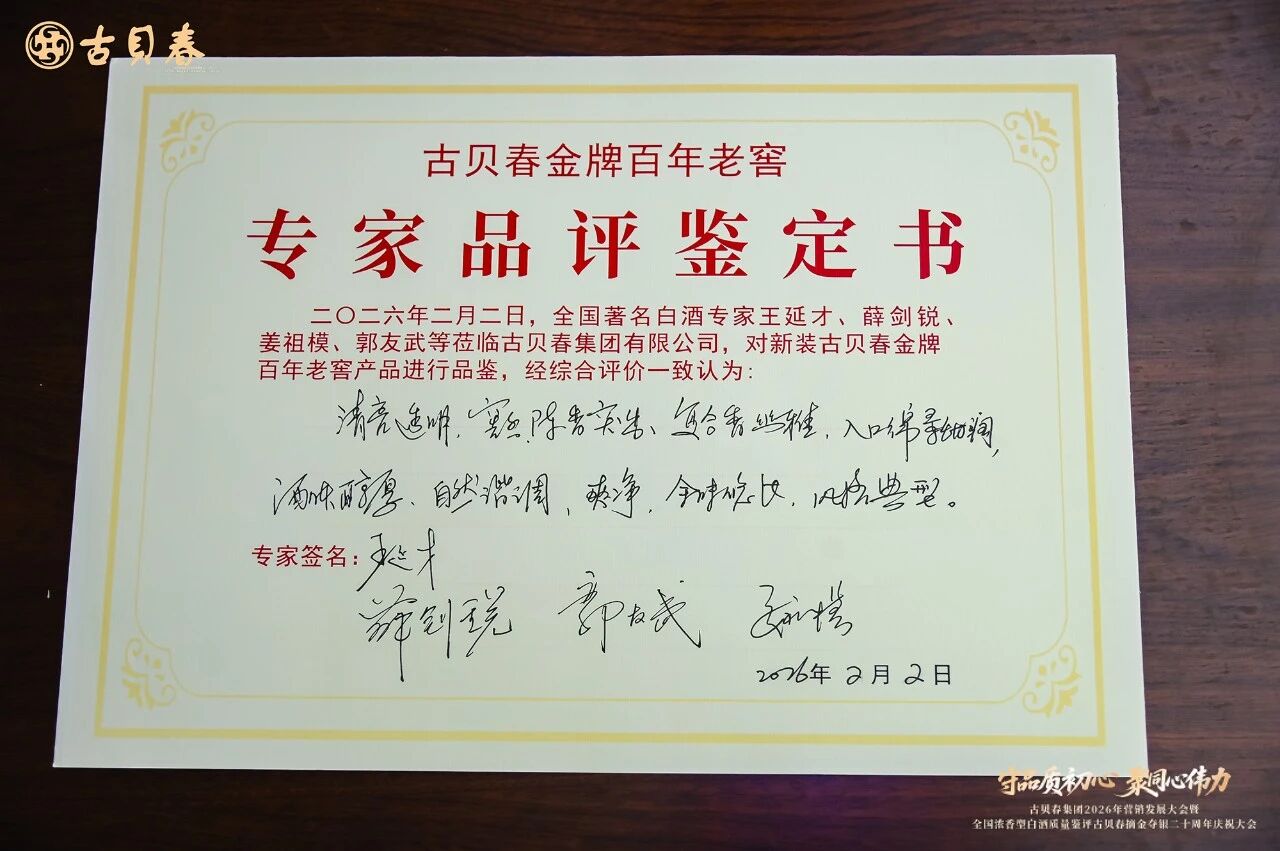 古贝春
古贝春金牌百年老窖
专家品评鉴定书
二〇二六年二月二日，全国著名白酒专家王延才、薛剑锐、
姜祖模、郭友武等莅临古贝春集团有限公司，对新装古贝春金牌
百年老窖产品进行品鉴，经综合评价一致认为：
清亮透明，窖香、陈香突出、复合香幽雅，入口绵柔细润，
酒味醇厚、自然谐调，爽净，余味悠长，风格典型。
专家签名：王延才
薛剑锐 郭友武 姜祖模
2026年2月2日
守品质初心 聚同心伟力
古贝春集团2026年营销发展大会暨
全国浓香型白酒质量鉴评古贝春摘金夺银二十周年庆祝大会